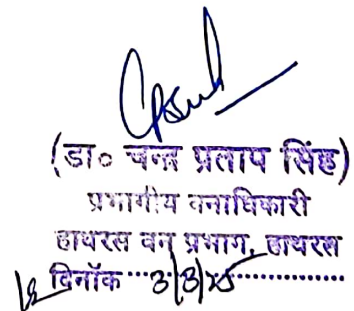 (डा० चन्द्र प्रताप सिंह)
प्रभागीय वनाधिकारी
हाथरस वन प्रभाग, हाथरस
दिनॉक 3/3/25